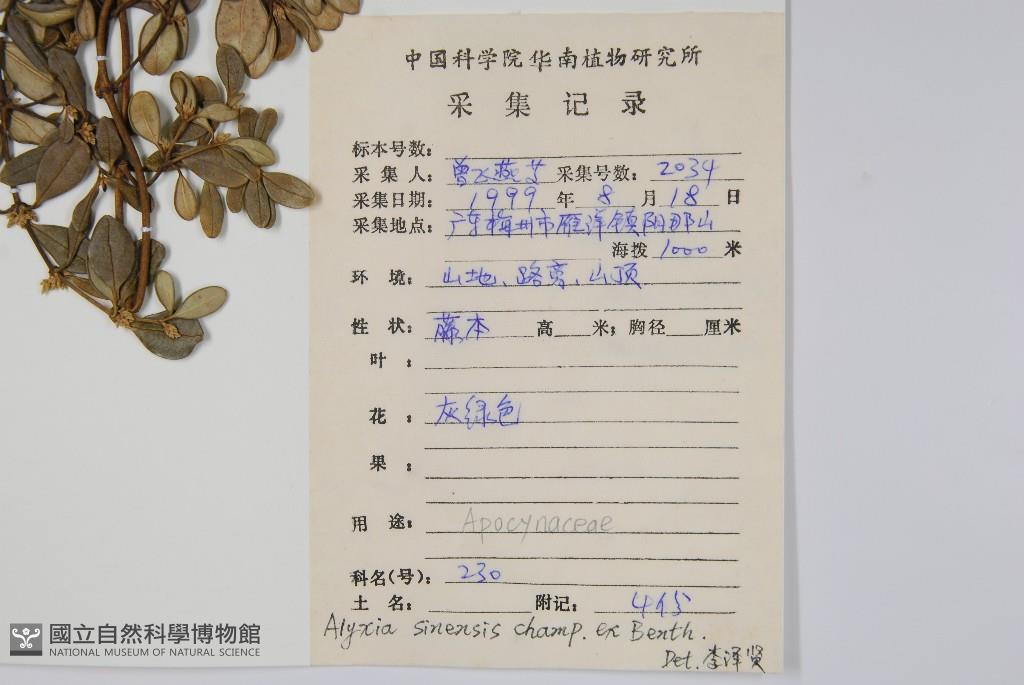 中国科学院华南植物研究所
采集记录
标本号数：
采集人：曾飞燕等 采集号数：2034
采集日期：1999年8月18日
采集地点：广东梅州市雁洋镇阴那山
海拨 1000 米
环境：山地、路旁、山顶
性状：藤本 高 米；胸径 厘米
叶：
花：灰绿色
果：
用途：Apocynaceae
科名(号)：230
土名： 附记：4份
Alyxia sinensis champ. ex Benth.
Det. 李泽贤
國立自然科學博物館
NATIONAL MUSEUM OF NATURAL SCIENCE